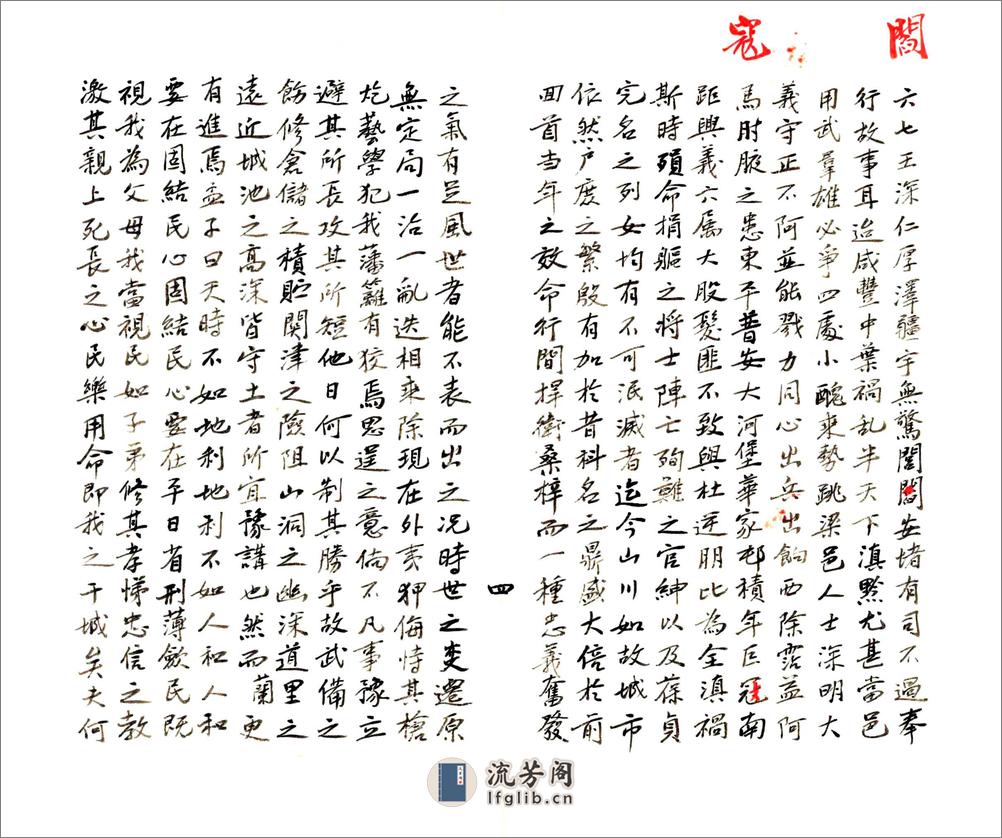 閻
寇
六七王深仁厚澤疆宇無驚閭閻安堵有司不過奉
行故事耳迨咸豐中葉禍乱半天下滇黔尤甚當邑
用武羣雄必爭四處小醜乘勢跳梁邑人士深明大
義守正不阿並能戮力同心出兵出餉西除霑益阿
馬肘腋之患東平普安大河堡華家邨積年巨冠南
距興義六属大股髮匪不致與杜逆朋比為全滇禍
斯時殞命捐軀之將士陣亡殉難之官紳以及葆貞
完名之列女均有不可泯滅者迄今山川如故城市
依然户度之繁殷有加於昔科名之鼎盛大倍於前
回首当年之效命行間捍衛桑梓而一種忠義奮發
四
之氣有足風世者能不表而出之况時世之变遷原
無定局一治一亂迭相乘除現在外夷狎侮恃其槍
炮藝學犯我藩籬有狡焉思逞之意倘不凡事豫立
避其所長攻其所短他日何以制其勝乎故武備之
飭修倉儲之積貯関津之險阻山洞之幽深道里之
遠近城池之高深皆守土者所宜豫講也然而蘭更
有進焉孟子曰天時不如地利地利不如人和人和
要在固結民心固結民心要在平日省刑薄歛民既
視我為父母我當視民如子弟修其孝悌忠信之教
激其親上死長之心民樂用命即我之干城矣夫何
流芳阁
lfglib.cn